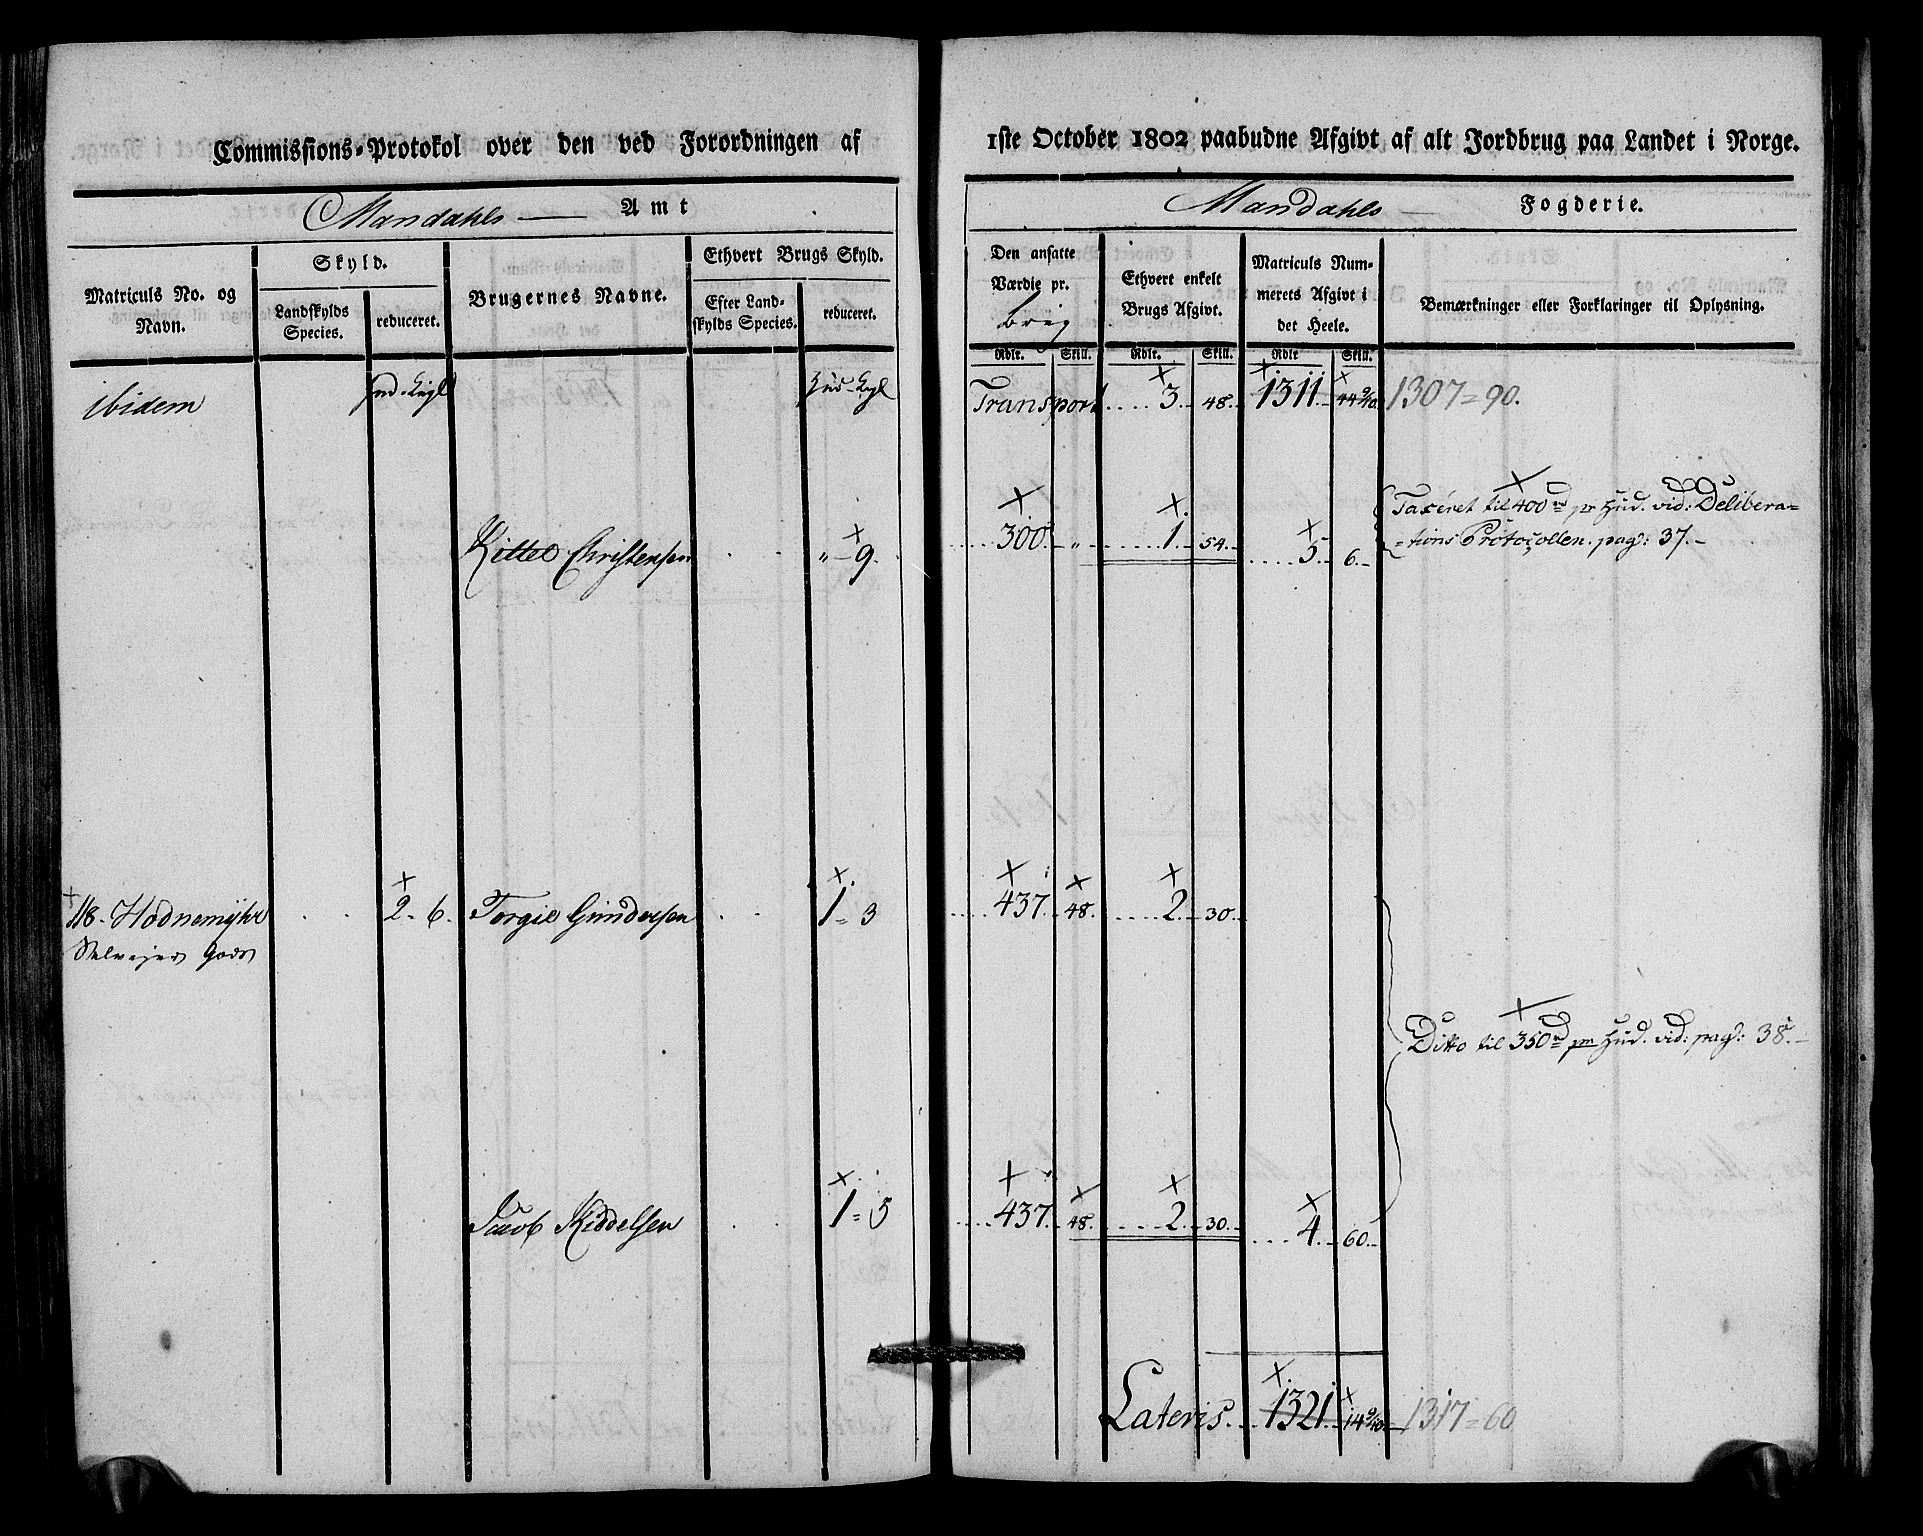 Commissions-Protokol over den ved Forordningen af
Mandahls Amt
Matriculs No. og Navn.
Skyld.
Landskylds Species.
reduceret.
Brugernes Navne.
Ethvert Brugs Skyld.
Efter Landskylds Species.
reduceret.
ibidem
Kittel Christensen " - 9.
118. Hodnemyhr 2. 6. Torgie Gundersen 1 = 3
Selveier Gods
Jacob Kiddelsen 1 = 5
1ste October 1802 paabudne Afgivt af alt Jordbrug paa Landet i Norge.
Mandahls Fogderie.
Den ansatte Værdie pr.
brug
Ethvert enkelt Brugs Afgivt.
Matriculs Nummerets Afgivt i det Heele.
Bemærkninger eller Forklaringer til Oplysning.
Rdlr. Skill. Rdlr. Skill. Rdlr Skill.
Transport .... 3. 48. 1311. 44 9/10. 1307 = 90.
Taxeret til 400 rd pr Hud. vid: Delibera=
300. " 1. 54. 5. 6. =tions Protocollen. pag: 37.
437. 48. 2. 30.
Ditto til 350 rd pr Hud. vid: pag: 38.
437. 48. 2. 30. 4. 60.
Lateris. 1321. 14 9/10. 1317 = 60